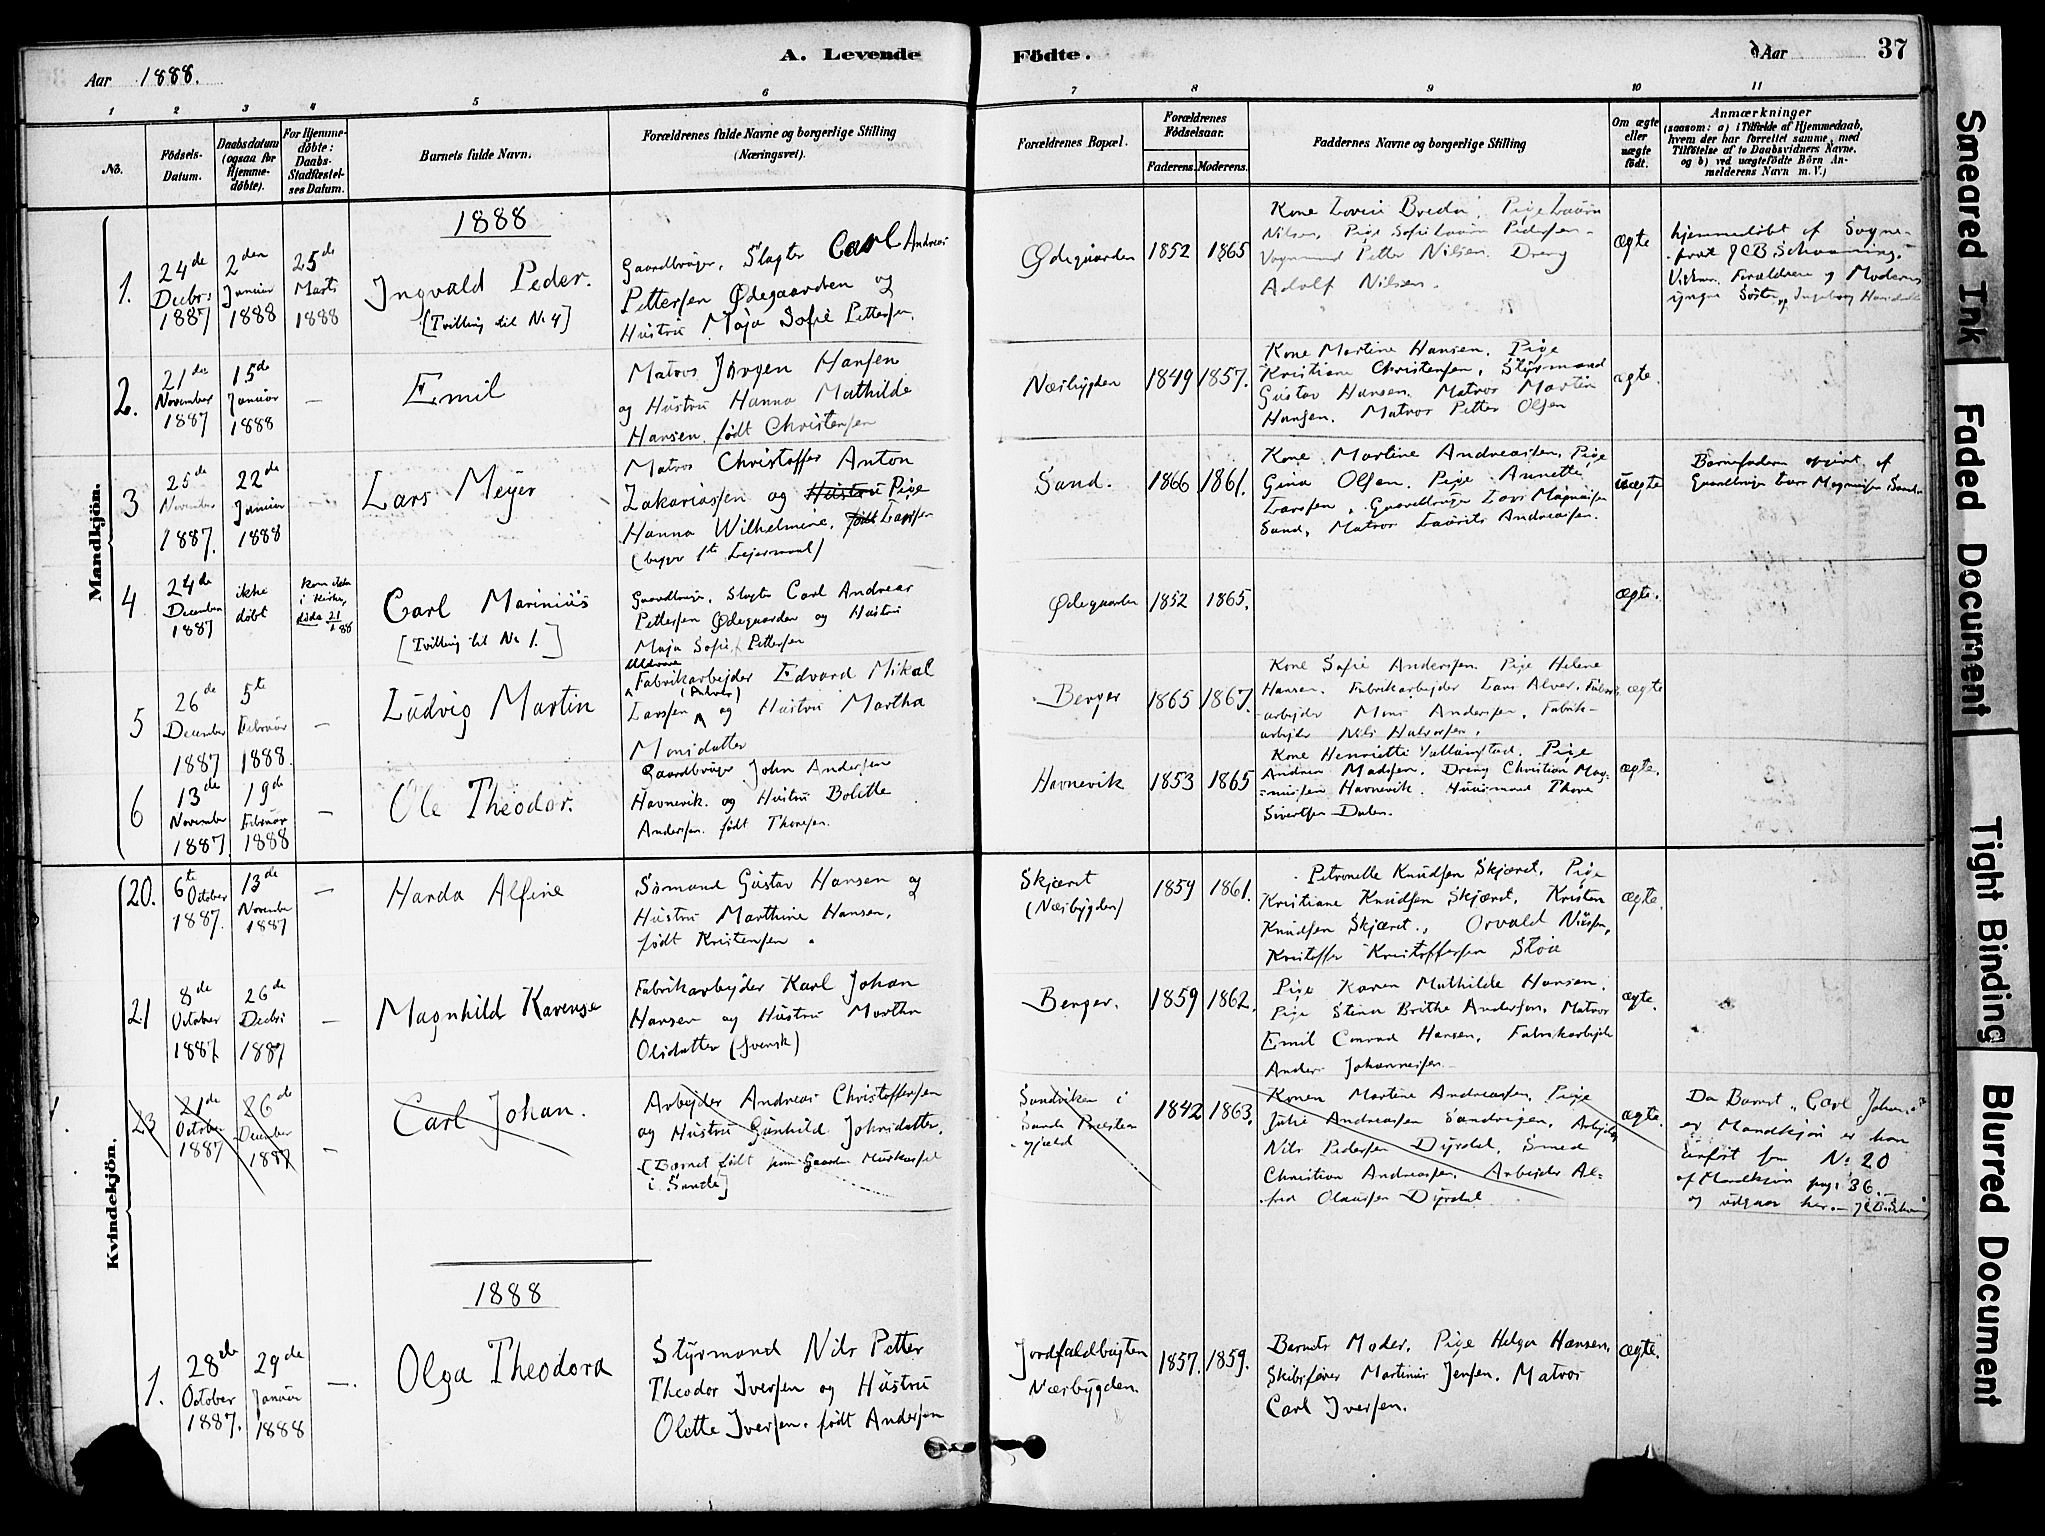 A. Levende Födte.
Aar 1888.
Aar 37
1 2 3 4 5 6 7 8 9 10 11
No.
Födsels-Datum.
Daabsdatum (ogsaa for Hjemme-döbte).
For Hjemme-döbte: Daabs-Stadfæstel-ses Datum.
Barnets fulde Navn.
Forældrenes fulde Navne og borgerlige Stilling
(Næringsvei).
Forældrenes Bopæl.
Forældrenes Födselsaar.
Faderens. Moderens.
Faddernes Navne og borgerlige Stilling
Om ægte eller uægte födt.
Anmærkninger
(saasom: a) i Tilfælde af Hjemmedaab,
hvem der har forrettet samme, med
Tilföielse af to Daabsvidners Navne,
og b) ved uægtefödte Börn An-
melderens Navn m. V.)
Mandkjön.
1888
1.
24de Decbr 1887
2den Januar 1888
25de Marts 1888
Ingvald Peder.
[Tvilling til No 4]
Gaardbruger, Slagter Carl Andreas
Pettersen Ødegaarden og
Hustru Maja Sofie Pettersen.
Ødegaarden
1852 1865
Kone Lovise Breda, Pige Laura
Nilsen, Pige Sofie Laura Pedersen
Petter Nilsen. Dreng
Adolf Nilsen.
ægte
hjemmedöbt af Sogne-
præst JCB Schwanning.
Vidner. Forældrene og Moderens
yngre Söster Ingeborg
2.
21de November 1887
15de Januar 1888
—
Emil
Matros Jörgen Hansen
og Hustru Hanna Mathilde
Hansen. født Christensen
Nærbygden
1849 1857.
Kone Martine Hansen, Pige
Kristiane Christensen, Styrmand
Gustav Hansen. Matros Martin
Hansen. Matros Petter Olsen
ægte.
3
25de November 1887.
22de Januar 1888
Lars Meyer
Matros Christoffer Anton
Zakariassen og Hustru Pige
Hanna Wilhelmine, født Larssen
(begges 1ste Leiermaal)
Sand.
1866 1861.
Kone Martine Andreassen, Pige
Gina Olsen. Pige Annette
Larssen, Gaardbruger Lars Magnussen
Sand, Matros Laurits Andreassen.
uægte
Barnefaderen opgivet af
Gaardbruger Lars Magnussen Sande
4
24de December 1887
ikke döbt
kom ikke i Kirke, döde 21/1 88
Carl Marinius
[Tvilling til No 1.]
Gaardbruger, Slagter Carl Andreas
Pettersen Ødegaarden og Hustru
Maja Sofie Pettersen
Ødegaarden
1852 1865.
ægte.
5
26de December 1887
5te Februar 1888.
—
Ludvig Martin
Fabrikarbejder Edvard Mikal
Larssen og Hustru Martha
Monsdatter
Berger
1865 1867.
Kone Sofie Andersen. Pige Helene
Hansen. Fabrikarbejder Lars Alver, Fabrik-
arbejder Mons Andersen, Fabrik-
arbejder Nils Halvorsen.
ægte
6
13de November 1887.
19de Februar 1888
—
Ole Theodor.
Gaardbruger John Andersen
Havnevik. og Hustru Bolette
Andersen. født Thoresen.
Havnevik
1853 1865
Kone Henriette, Pige
Andrea Madsen. Dreng Christian Mag-
nussen Havnevik. Husmand Thore
Sivertsen Dalen.
ægte.
Kvindekjön.
20.
6te October 1887.
13de November 1887
—
Harda Alfine
Sömand Gustav Hansen og
Hustru Marthine Hansen,
født Kristensen.
Skjæret
(Nærbygden)
1859 1861.
Petronelle Knudsen Skjæret, Pige
Kristiane Knudsen Skjæret, Kristen
Knudsen Skjæret., Osvald Nilssen,
Kristoffer Kristoffersen Stoa
ægte.
21
8de October 1887.
26de Decbr 1887
—
Magnhild Kavense
Fabrikarbejder Karl Johan
Hansen og Hustru Martha
Olsdatter (svensk)
Berger.
1859 1862.
Pige Karen Mathilde Hansen.
Pige Stina Brithe Anderson, Matros
Emil Conrad Hansen, Fabrikarbejder
Anders Johannessen
ægte.
23
21de October 1887
26de December 1887
—
Carl Johan.
Arbejder Andreas Christoffersen
og Hustru Gunhild Johnsdatter.
(Barnet født paa Gaarden
i Sande)
Sandviken i
Sande Præste-
gjæld
1842 1863.
Konen Martine Andreassen, Pige
Julie Andreassen Sandvigen, Arbejder
Nils Pedersen Dyrdal, Smed
Christian Andreassen, Arbejder Al-
fred Olaussen Dyrdal.
ægte.
Da Barnet „Carl Johan"
er Mandkjön er han
anført som No 20
af Mandkjön pag: 36.
og udgaar her.—
1888
1.
28de October 1887.
29de Januar 1888
—
Olga Theodora
Styrmand Nils Petter
Theodor Iversen og Hustru
Olette Iversen. født Andersen
Jordfaldbugten
Nærbygden.
1857. 1859.
Barnets Moder, Pige Helga Hansen,
Skibsfører Martinius Jensen, Matros
Carl Iversen.
ægte.
Smeared Ink
Faded Document
Tight Binding
Blurred Document